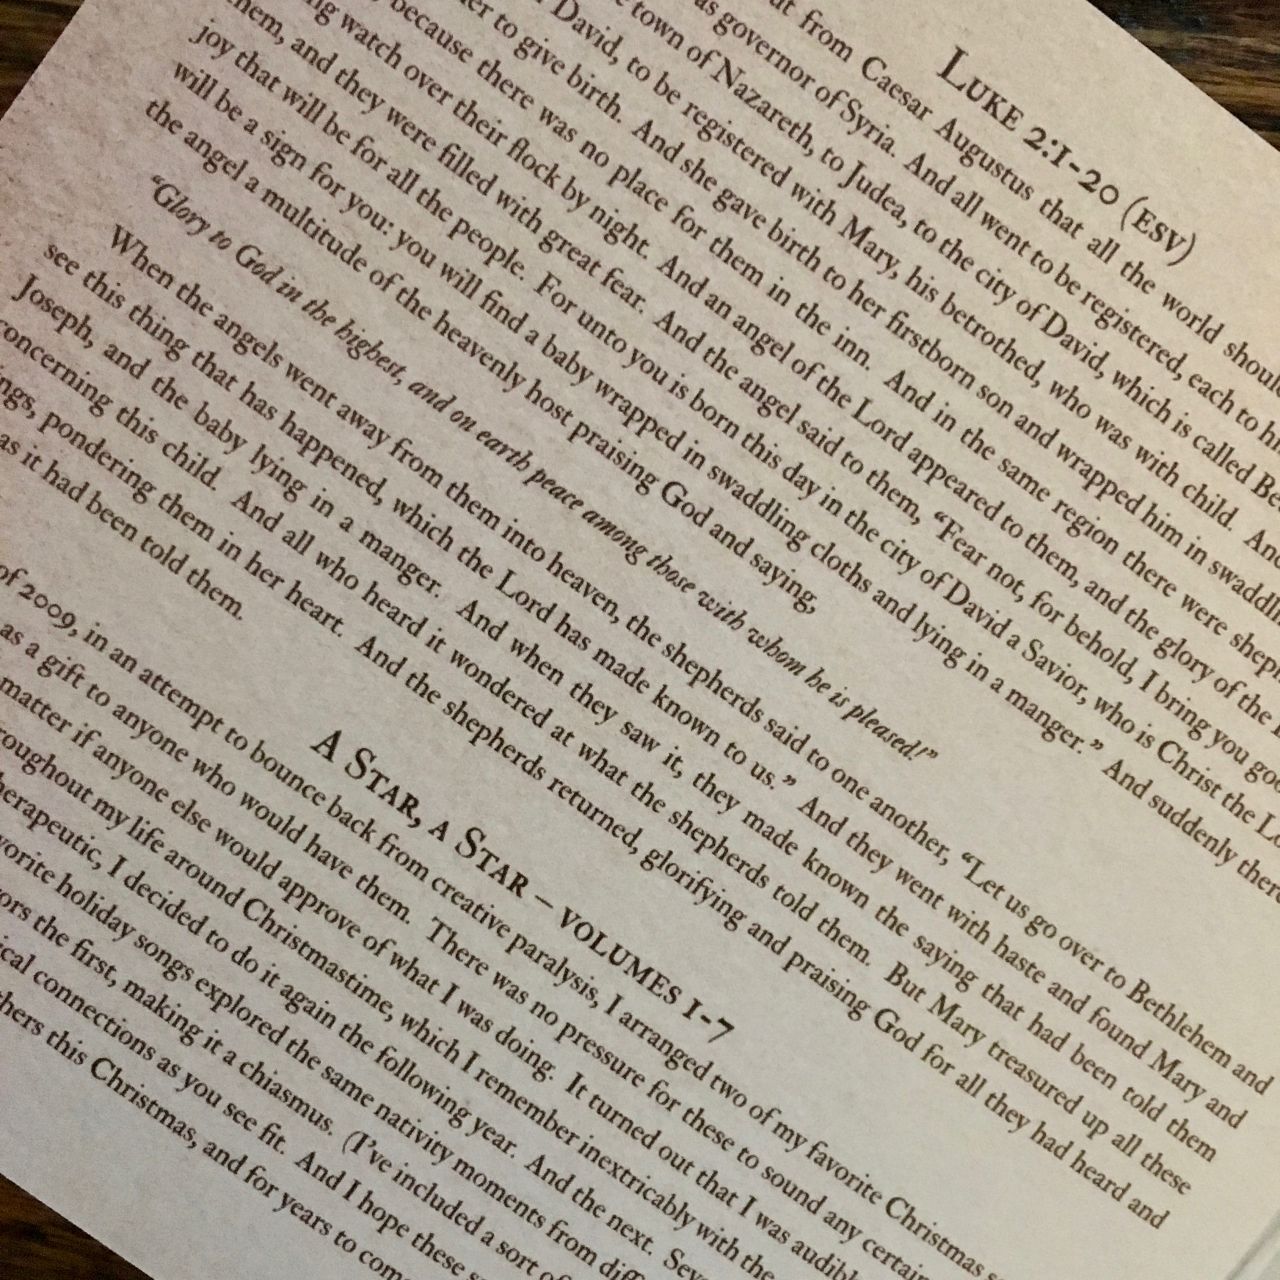 LUKE 2:1-20 (ESV)
from Caesar Augustus that all the world should
as governor of Syria. And all went to be registered, each to
town of Nazareth, to Judea, to the city of David, which is called
David, to be registered with Mary, his betrothed, who was with child. And
to give birth. And she gave birth to her firstborn son and wrapped him in
because there was no place for them in the inn. And in the same region there were
watch over their flock by night. And an angel of the Lord appeared to them, and the glory of the
them, and they were filled with great fear. And the angel said to them, “Fear not, for behold, I bring you
joy that will be for all the people. For unto you is born this day in the city of David a Savior, who is Christ the
will be a sign for you: you will find a baby wrapped in swaddling cloths and lying in a manger.” And suddenly there
the angel a multitude of the heavenly host praising God and saying,
“Glory to God in the highest, and on earth peace among those with whom he is pleased!”
When the angels went away from them into heaven, the shepherds said to one another, “Let us go over to Bethlehem and
see this thing that has happened, which the Lord has made known to us.” And they went with haste and found Mary and
Joseph, and the baby lying in a manger. And when they saw it, they made known the saying that had been told them
concerning this child. And all who heard it wondered at what the shepherds told them. But Mary treasured up all these
ings, pondering them in her heart. And the shepherds returned, glorifying and praising God for all they had heard and
as it had been told them.
A STAR, A STAR – VOLUMES 1-7
of 2009, in an attempt to bounce back from creative paralysis, I arranged two of my favorite Christmas
as a gift to anyone who would have them. There was no pressure for these to sound any certain
matter if anyone else would approve of what I was doing. It turned out that I was
roughout my life around Christmastime, which I remember inextricably with the
herapeutic, I decided to do it again the following year. And the next.
vorite holiday songs explored the same nativity moments from
ors the first, making it a chiasmus. (I’ve included a sort of
ical connections as you see fit. And I hope these
thers this Christmas, and for years to com